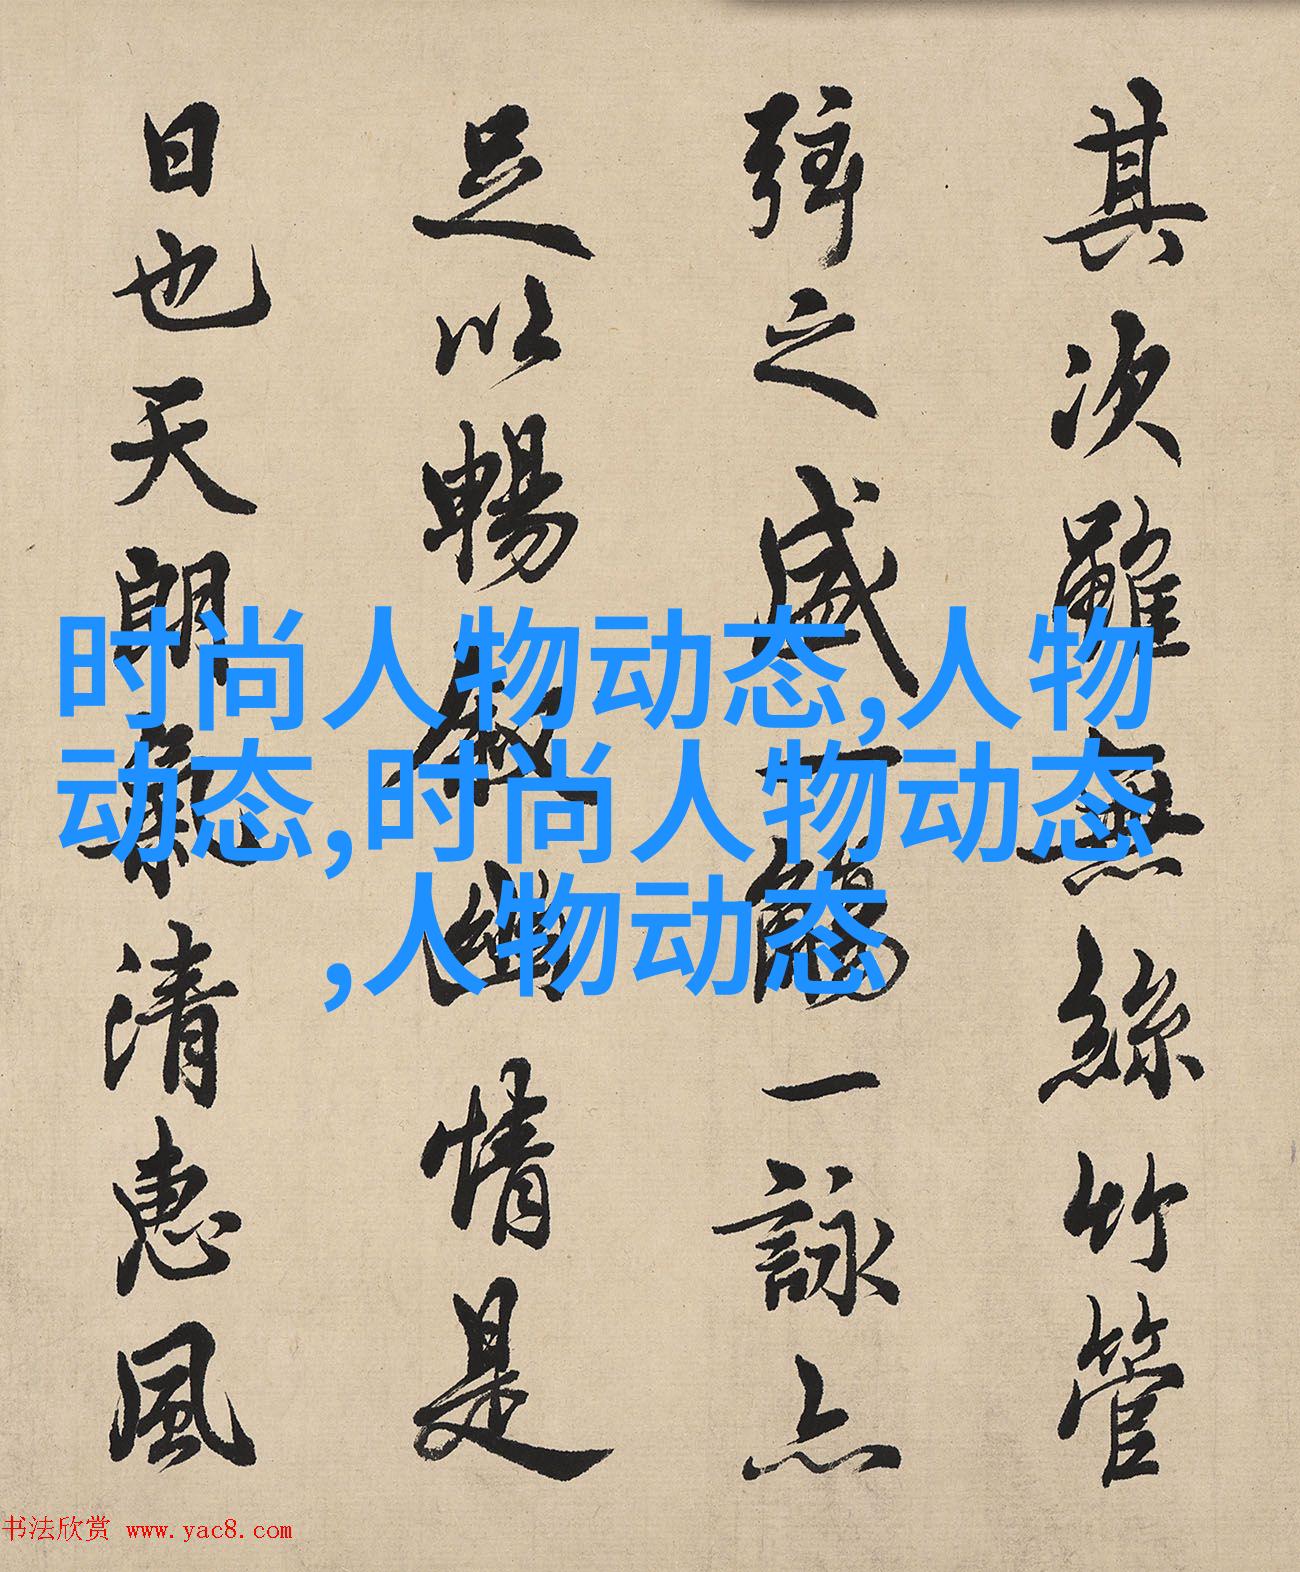 其次雖無絲竹管
弦之盛一觴一詠亦
足以暢敘幽情是
日也天朗氣清惠風
时尚人物动态,人物
动态,时尚人物动态
,人物动态
书法欣赏 www.yac8.com